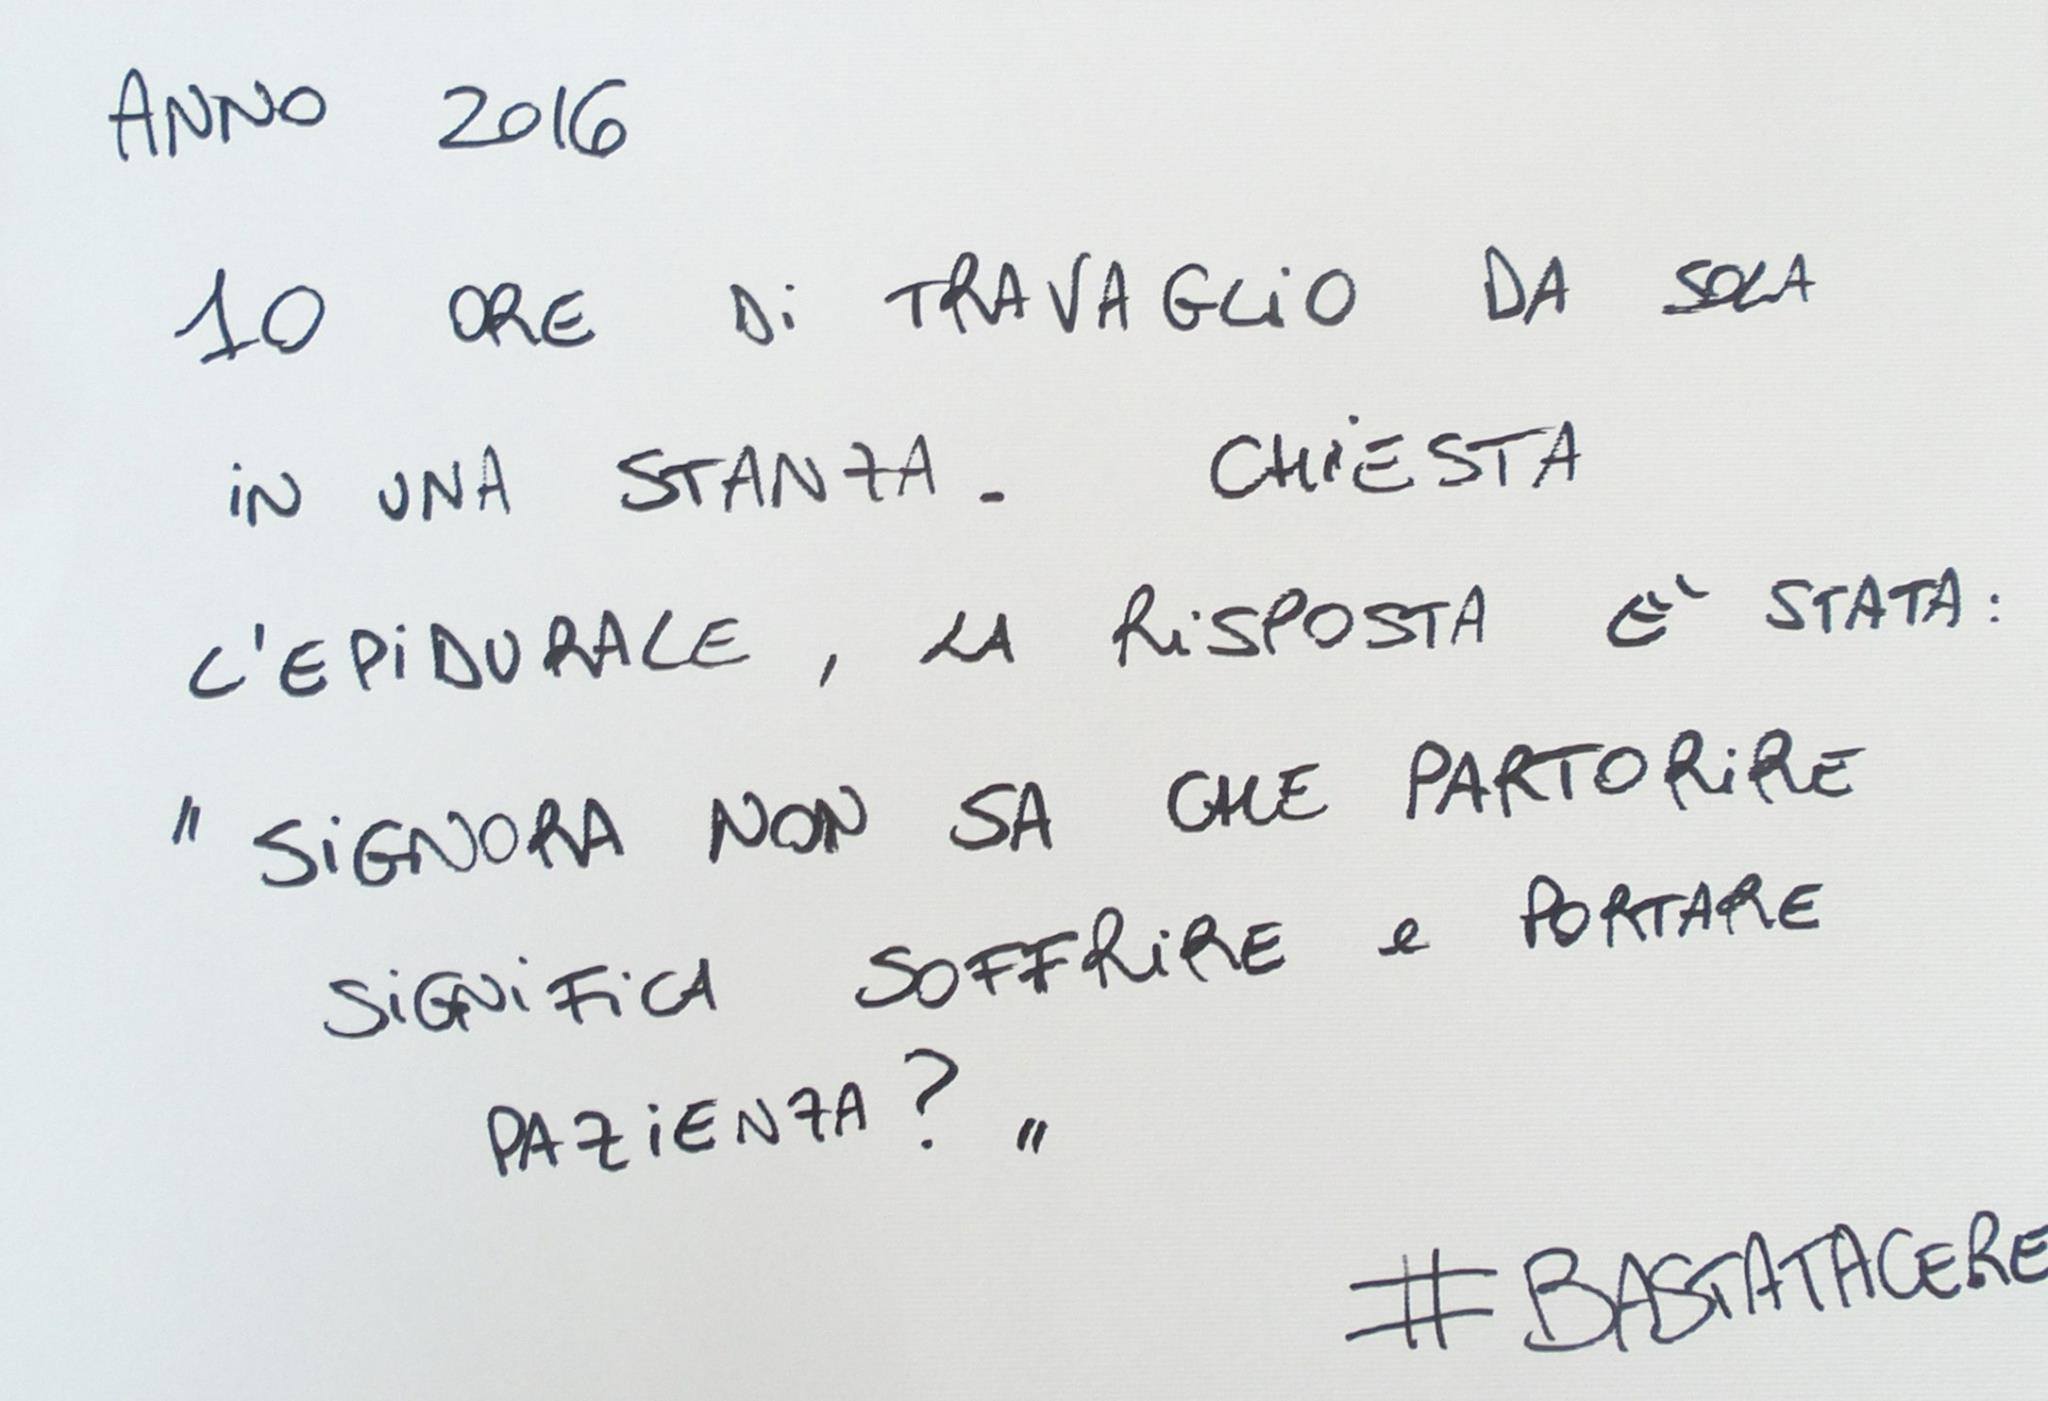 ANNO 2016
10 ORE Di TRAVAGLiO DA SOLA
iN UNA STANZA. CHiESTA
L'EPiDURALE, LA RiSPOSTA E' STATA:
"SiGNORA NON SA CHE PARTORiRE
SiGNiFiCA SOFFRiRE e PORTARE
PAZiENZA?"
#BASTATACERE